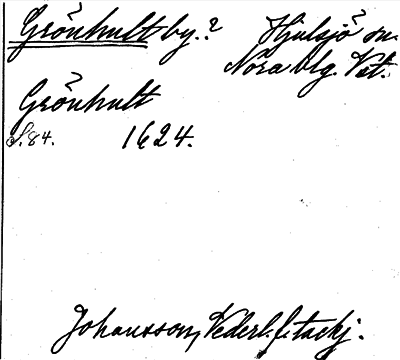 ?
Grönhult by.? Hjulsjö? sn.
Nora blg. Vst.
?
Grönhult
S. 84. 1624.
Johansson, Vederl. f. tackj.